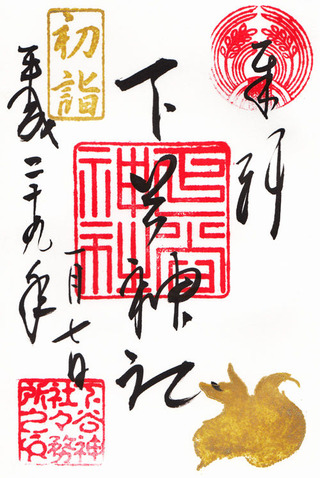 奉拝
下谷神社
下谷神社
初詣
平成二十九年
一月七日
下谷神社々務所之印